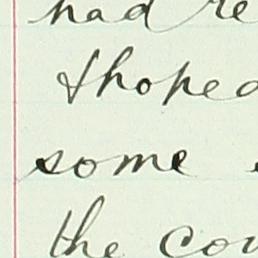 had re
& hoped
some
the cou